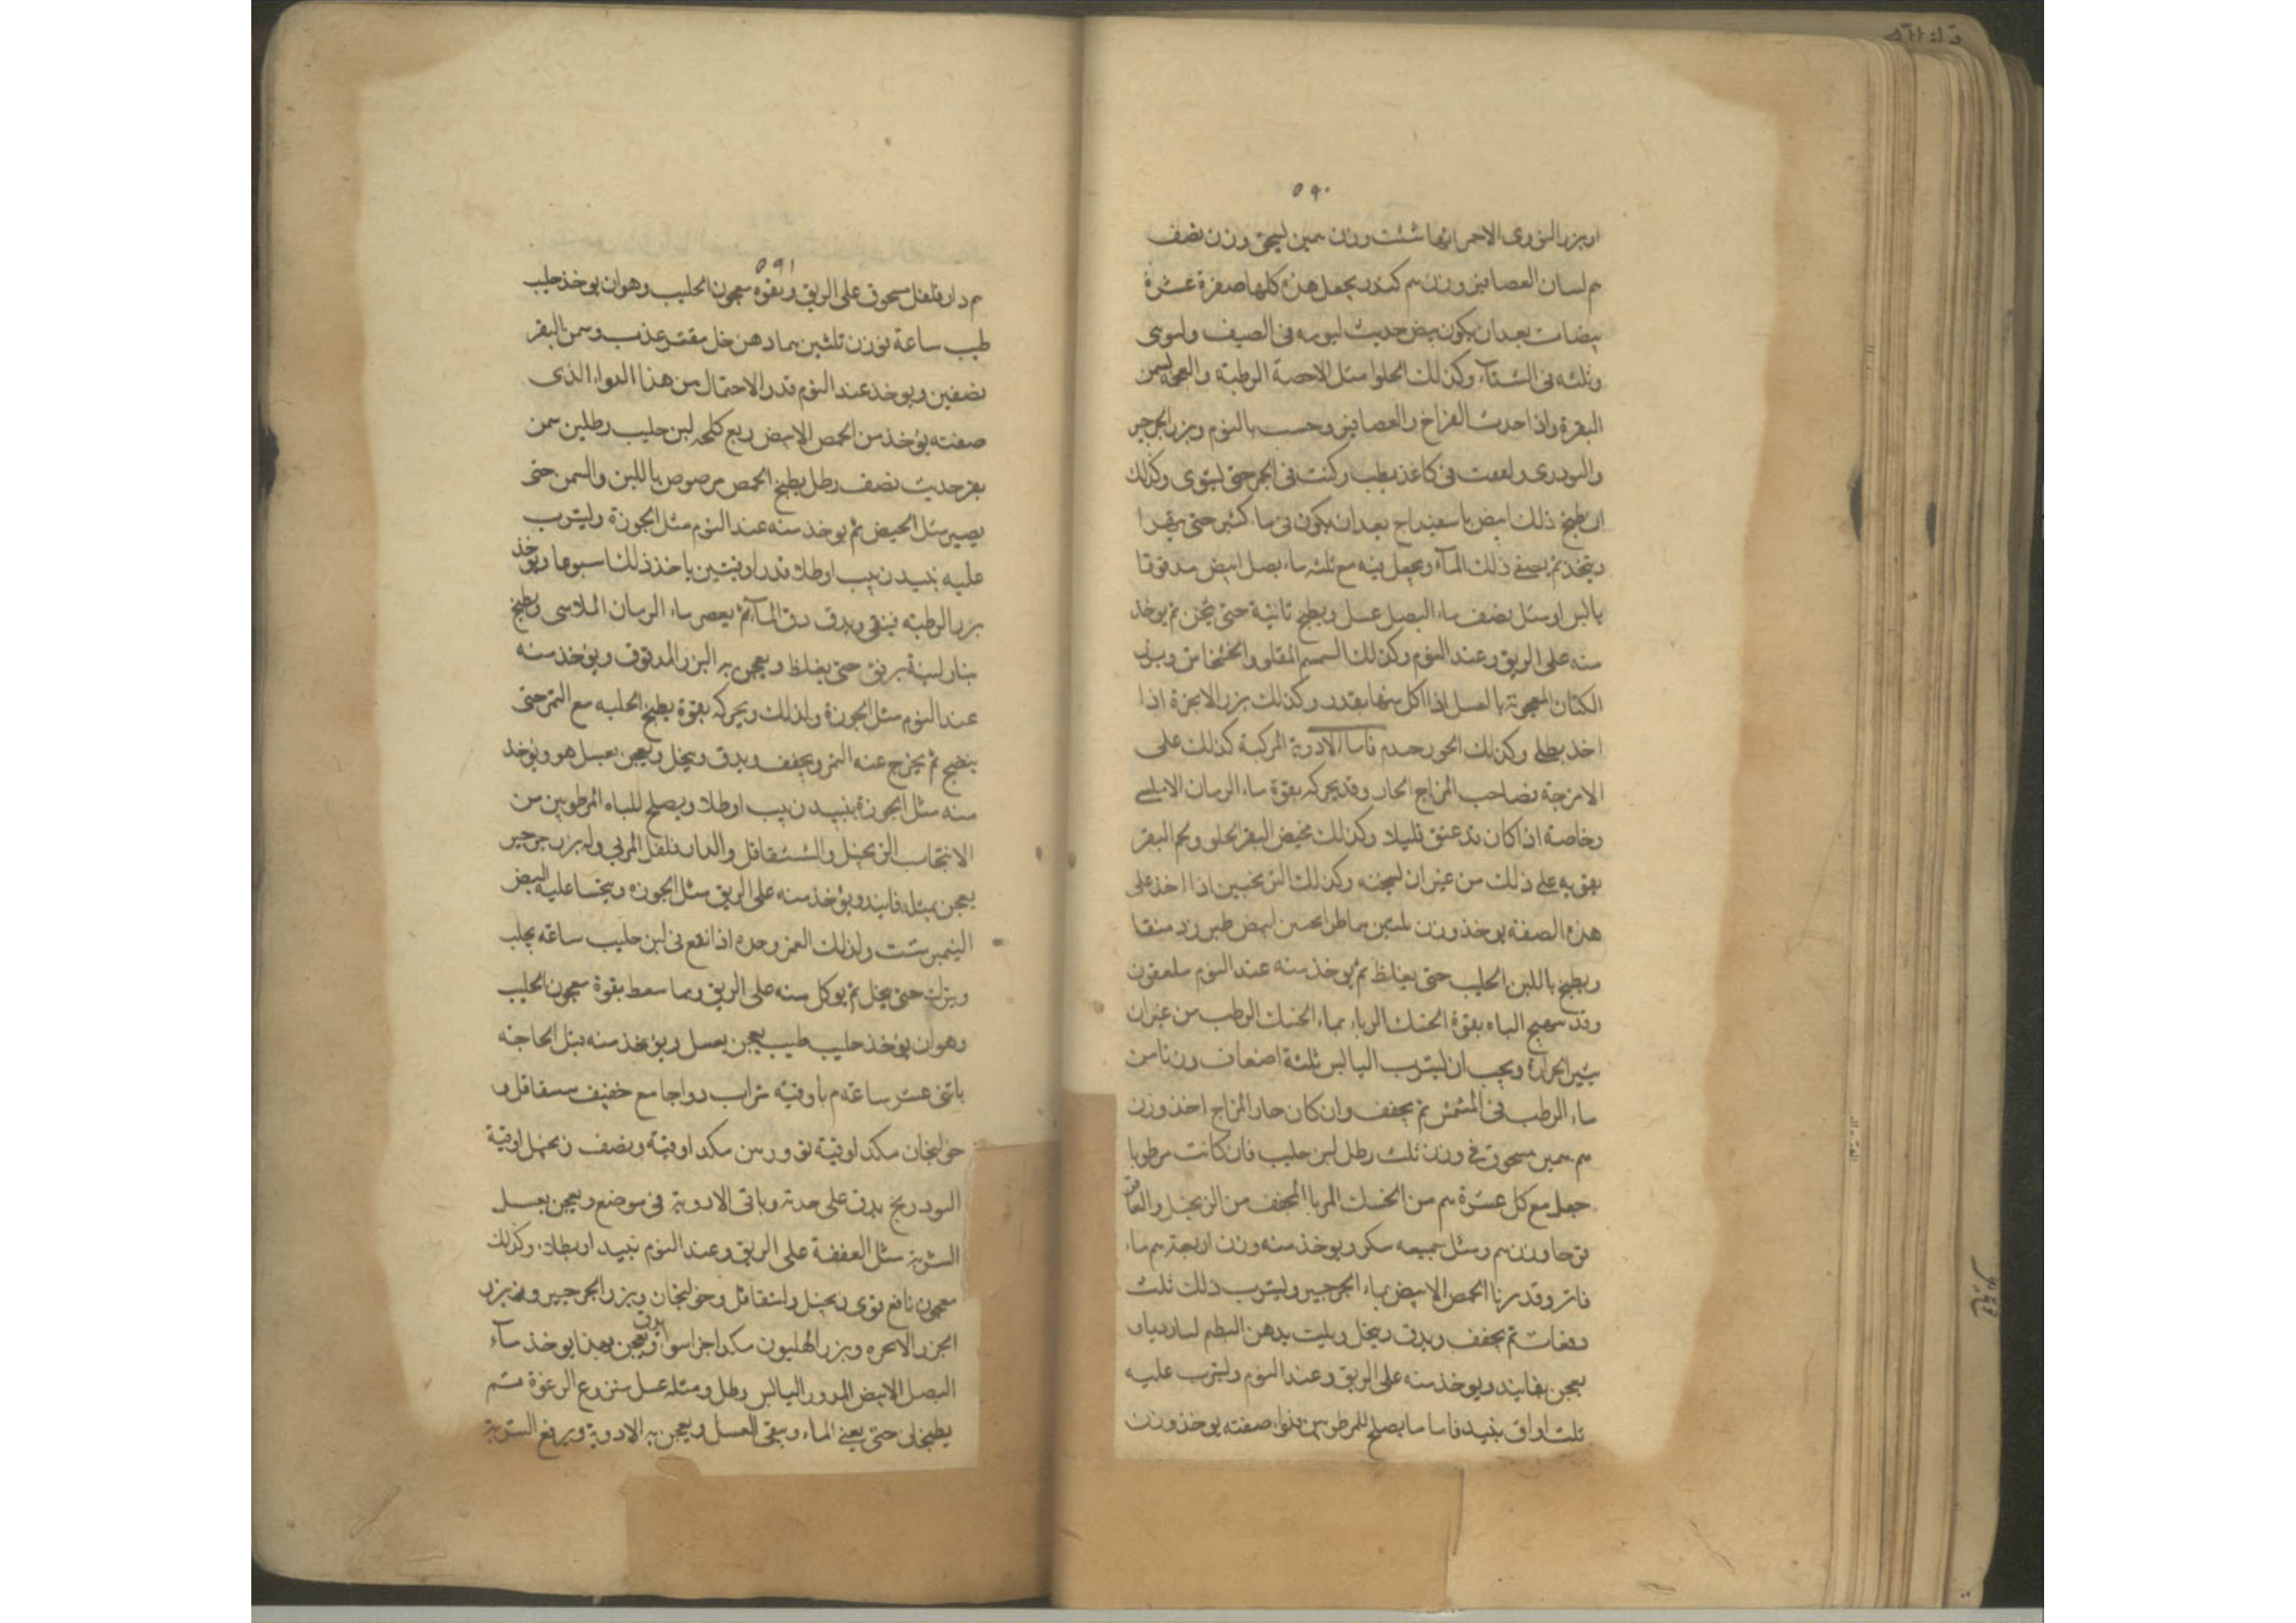 ٥٩٠
او بزر التودرى الاحمر ايها شئت وزن همين ليحق وزن نصف
م لسان العصافير وزن م كندر يجعل هذه كلها صفرة عشرة
بيضات بعد ان يكون بيض حديث ليومه فى الصيف وليومى
وثلثه فى الشتآء وكذلك الحلوا مثل الاحصة الرطبة والعجه لسمن
البقرة واذا احدث الفراخ والعصافير وحسب بالثوم وبزر الجرجير
والتودرى ولففت فى كاغذ بطب وكنت فى الجمر حتى ليتوى وكذلك
ان طبخ ذلك ابيض باسفيدراج بعد ان يكون فى ما كثير حتى يتهرا
ويتخذ ثم يصفى ذلك المآء ويجعل فيه مع ثلثه ماء بصل ابيض مدقوقا
يابس او مثل نصف ماء البصل عسل ويطبخ ثانية حتى يثخن ثم يوخذ
منه على الريق وعند النوم وكذلك السمسم المقلو والخشخاش وبزر
الكتان المعجونة بالعسل اذا اكل منها بقدر وكذلك بزر الانجرة اذا
اخذ بطلى وكذلك الحور حدم فاما الادوية المركبة كذلك على
الامزجة فصاحب المزاج الحار وقد يحركه بقوة ماء الرمان الامليسى
وخاصة اذا كان قد عتق قليلا وكذلك مخيض البقر الحلو ولحم البقر
يقويه على ذلك من غير ان ليخنه وكذلك الترنجبين اذا اخذ على
هذه الصفة يوخذ وزن ابيض طبرزد منقا
ويطبخ باللبن الحليب حتى يغلظ ثم يوخذ منه عند النوم ملعقون
وقد يهيج الباه بقوة الحسك الرباء بماء الحسك الرطب من غيران
يثير الحرارة ويجب ان ليترب اليابس ثلثة اضعاف وزنا من
ماء الرطب فى المشمش ثم يجفف وان كان حار المزاج اخذ وزن
م همين مسحوق فى وزن ثلث رطل لبن حليب فان كانت مرطوبا
جعل مع كل عشرة م من الحسك المربا المجفف من الزنجبيل والعاقر
قرحا وزن م ومثل جميعه سكر ويوخذ منه وزن اربعة م ماء
فاتر وقد ربنا الحمص الابيض بماء الجرجير وليترب ذلك ثلث
دفعات ثم يجفف ويدق وينخل ويلت بدهن البطم
يعجن بفانيد ويوخذ منه على الريق وعند النوم وليترب عليه
ثلث اواق بنيد فاما ما يصلح للمرطوبين صفته يوخذ وزن
٥٩١
م دارفلفل مسحوق على الريق ويقوه معجون الحليب وهو ان يوخذ حليب
طيب ساعة نوزن ثلثين بماد هن خل مقتر عذب وسمن البقر
نصفين ويوخذ عند النوم قدر الاحتمال من هذا الدواء الذى
صفته يؤخذ من الحمص الابيض ربع كلحه لبن حليب رطلين سمن
بقر حديث نصف رطل يطبخ الحمص مرصوص باللبن والسمن حتى
يصير مثل الخبيص ثم يوخذ منه عند النوم مثل الجوزة وليترب
عليه نبيد زبيب او طلا قدر اوقيتين ياخذ ذلك اسبوعا ويؤخذ
بزر الرطبة فينقى ويدق دق المآء ثم يعصر ماء الرمان الملاسى ويطبخ
بنار لينة برفق حتى يغلظ ويعجن به البزر المدقوق ويؤخذ منه
عند النوم مثل الجوزة ولذلك ويحركه بقوة يطبخ الحلبه مع التمر حتى
ينضج ثم يخرج عنه التمر ويجفف ويدق وينخل ويعجن بعسل هو ويؤخذ
منه مثل الجوزة بنبيد زبيب او طلا ويصلح للباه المرطوبين من
الانتخاب الزنجبيل والششقاقل والدارفلفل المربى وله بزر جرجير
يعجن بمثله فانيد ويؤخذ منه على الريق مثل الجوزه ويتحسا عليه البيض
النيمبرشت ولذلك التمر وحده اذا نقع فى لبن حليب ساعة يحلب
ويترك حتى ينحل ثم يوكل منه على الريق ومما سعط بقوة معجون الحليب
وهو ان يؤخذ حليب طيب يعجن بعسل ويؤخذ منه قبل الحاجة
باثنى عشر ساعة م باوقية شراب دواجا مع خفيف سقاقل و
خولنجان مكد اوقية تو ورس مكد اوقية ونصف زنجبيل اوقية
التودريج يدق على حدة وباقى الادوية فى موضع ويعجن بعسل
الشربة مثل العفصة على الريق وعند النوم بنبيد او بطلا وكذلك
معجون نافع قوى زنجبيل واشقاقل وخولنجان وبزر الجرجير وبزر
الجزر الانجره وبزر الهليون مكد اجزا سوا يدق ويعجن بهذا يوخذ مآء
البصل الابيض المدور اليابس رطل ومثله عسل منزوع الرغوة ثم
يطبخان حتى يفنى الماء ويبقى العسل ويعجن به الادوية ويرفع الشربة